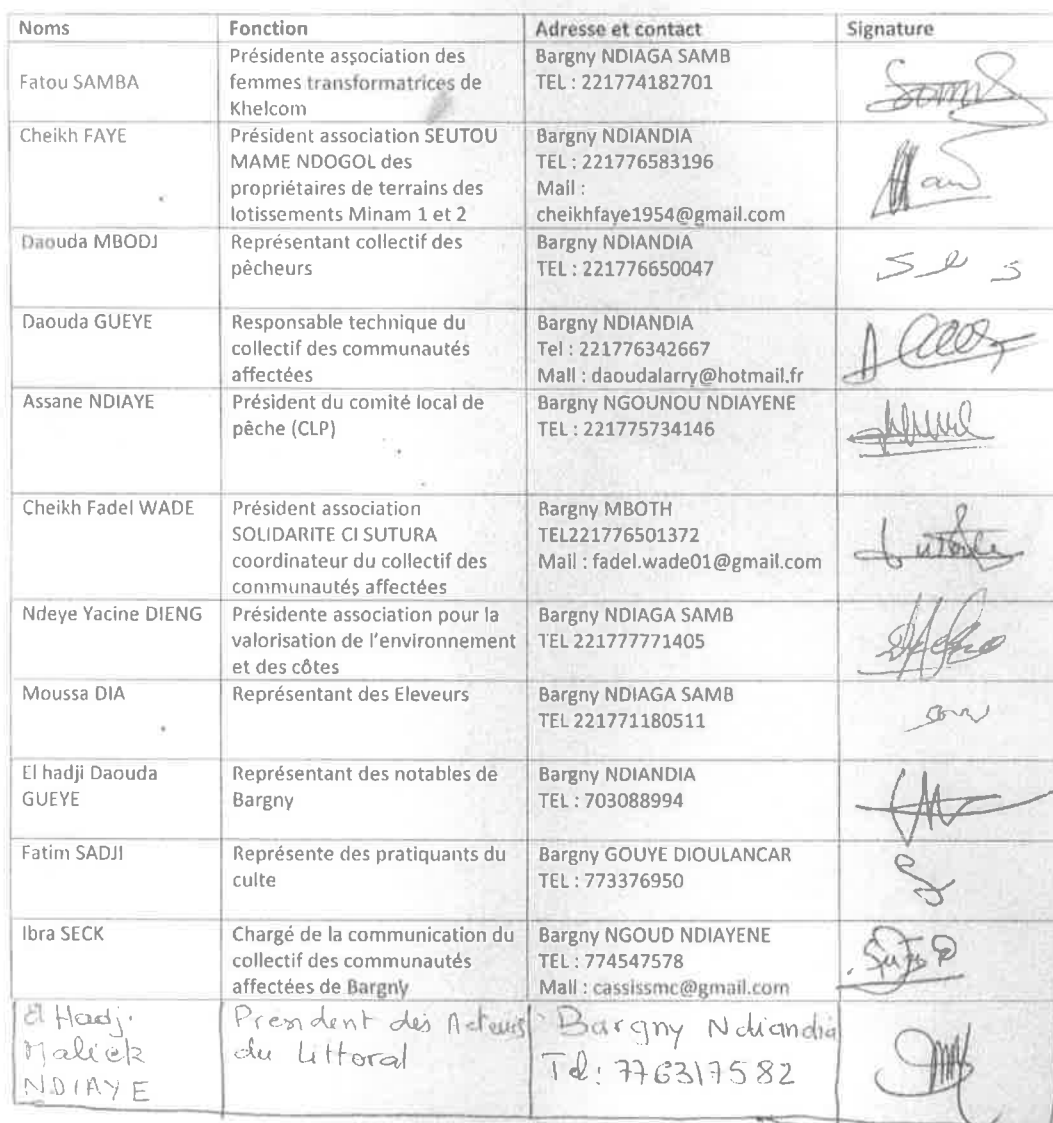 Noms
Fonction
Adresse et contact
Signature
Fatou SAMBA
Présidente association des
femmes transformatrices de
Khelcom
Bargny NDIAGA SAMB
TEL : 221774182701
Cheikh FAYE
Président association SEUTOU
MAME NDOGOL des
propriétaires de terrains des
lotissements Minam 1 et 2
Bargny NDIANDIA
TEL : 221776583196
Mail :
cheikhfaye1954@gmail.com
Daouda MBODJ
Représentant collectif des
pêcheurs
Bargny NDIANDIA
TEL : 221776650047
Daouda GUEYE
Responsable technique du
collectif des communautés
affectées
Bargny NDIANDIA
Tel : 221776342667
Mail : daoudalarry@hotmail.fr
Assane NDIAYE
Président du comité local de
pêche (CLP)
Bargny NGOUNOU NDIAYENE
TEL : 221775734146
Cheikh Fadel WADE
Président association
SOLIDARITE CI SUTURA
coordinateur du collectif des
communautés affectées
Bargny MBOTH
TEL221776501372
Mail : fadel.wade01@gmail.com
Ndeye Yacine DIENG
Présidente association pour la
valorisation de l'environnement
et des côtes
Bargny NDIAGA SAMB
TEL 221777771405
Moussa DIA
Représentant des Eleveurs
Bargny NDIAGA SAMB
TEL 221771180511
El hadji Daouda
GUEYE
Représentant des notables de
Bargny
Bargny NDIANDIA
TEL : 703088994
Fatim SADJI
Représente des pratiquants du
culte
Bargny GOUYE DIOULANCAR
TEL : 773376950
Ibra SECK
Chargé de la communication du
collectif des communautés
affectées de Bargny
Bargny NGOUD NDIAYENE
TEL : 774547578
Mail : cassissmc@gmail.com
El Hadj.
Malick
NDIAYE
President des Acteurs
du Littoral
Bargny Ndiandia
Tel: 776317582